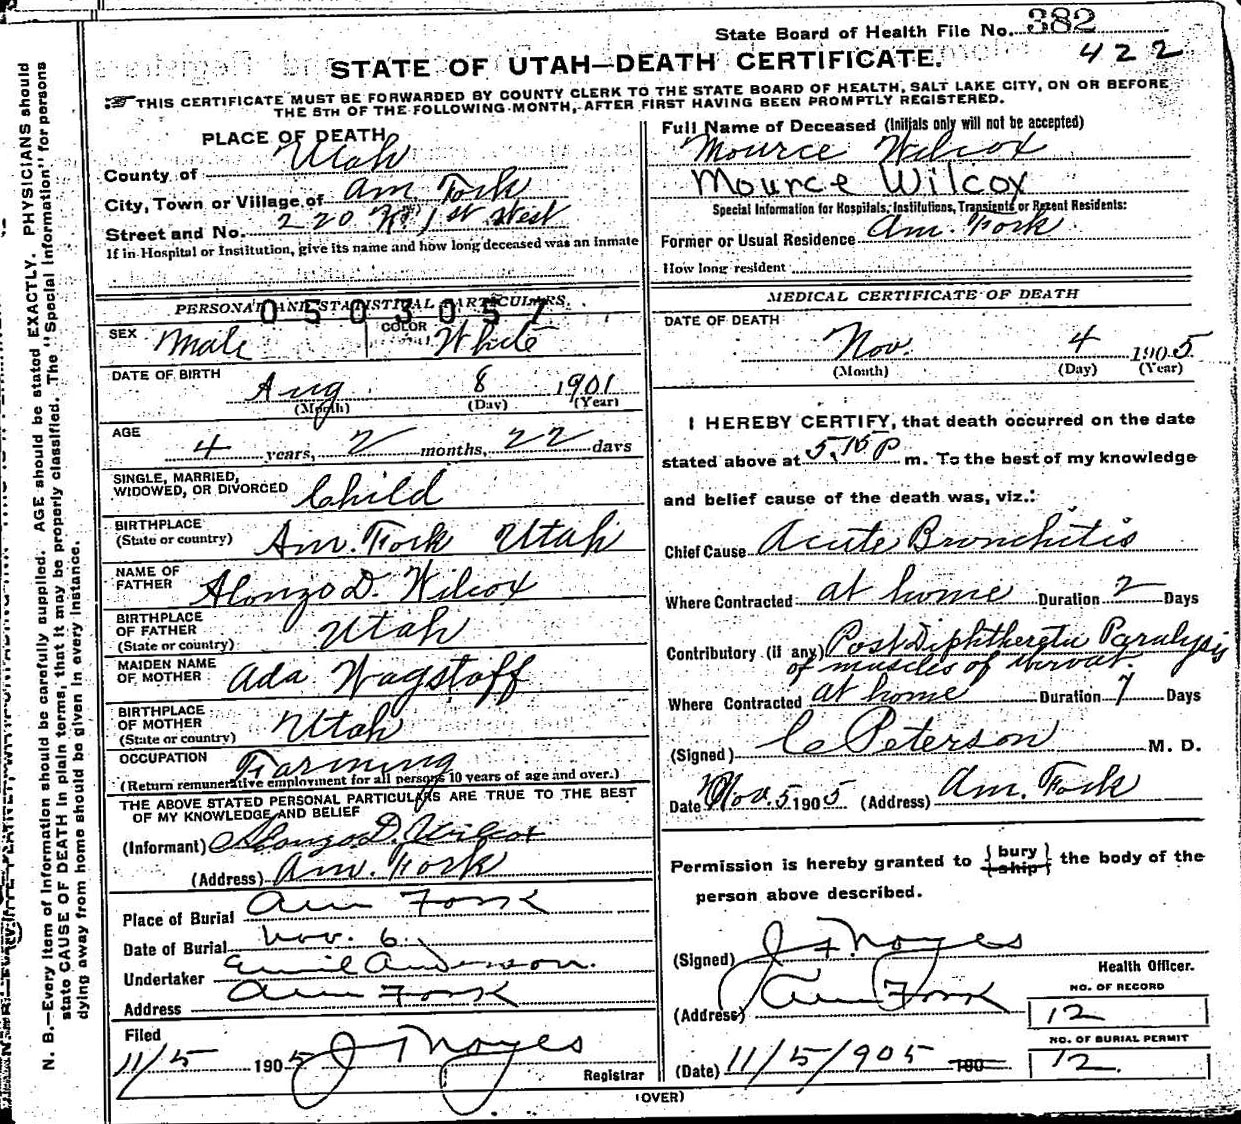 State Board of Health File No. 382
422
STATE OF UTAH—DEATH CERTIFICATE.
THIS CERTIFICATE MUST BE FORWARDED BY COUNTY CLERK TO THE STATE BOARD OF HEALTH, SALT LAKE CITY, ON OR BEFORE
THE 5TH OF THE FOLLOWING MONTH, AFTER FIRST HAVING BEEN PROMPTLY REGISTERED.
PLACE OF DEATH
County of Utah
City, Town or Village of Am. Fork
Street and No. 220 N. 1st West
If in Hospital or Institution, give its name and how long deceased was an Inmate
Full Name of Deceased (Initials only will not be accepted)
Mource Wilcox
Mource Wilcox
Special Information for Hospitals, Institutions, Transients or Recent Residents:
Former or Usual Residence Am. Fork
How long resident
PERSONAL AND STATISTICAL PARTICULARS.
0503057
SEX Male COLOR White
DATE OF BIRTH Aug 8 1901
(Month) (Day) (Year)
AGE 4 years, 2 months, 22 days
SINGLE, MARRIED,
WIDOWED, OR DIVORCED Child
BIRTHPLACE
(State or country) Am. Fork Utah
NAME OF
FATHER Alonzo D. Wilcox
BIRTHPLACE
OF FATHER
(State or country) Utah
MAIDEN NAME
OF MOTHER Ada Wagstaff
BIRTHPLACE
OF MOTHER
(State or country) Utah
OCCUPATION Farming
(Return remunerative employment for all persons 10 years of age and over.)
THE ABOVE STATED PERSONAL PARTICULARS ARE TRUE TO THE BEST
OF MY KNOWLEDGE AND BELIEF
(Informant) Alonzo D. Wilcox
(Address) Am. Fork
Place of Burial Am Fork
Date of Burial Nov. 6
Undertaker Emil Anderson.
Address Am Fork
Filed
11/5 1905 J F Noyes
Registrar
MEDICAL CERTIFICATE OF DEATH
DATE OF DEATH
Nov. 4 1905
(Month) (Day) (Year)
I HEREBY CERTIFY, that death occurred on the date
stated above at 5,15 P m. To the best of my knowledge
and belief cause of the death was, viz.:
Chief Cause Acute Bronchitis
Where Contracted at home Duration 2 Days
Contributory (if any) Post Diphtheretic Paralysis
of muscles of
Where Contracted at home Duration 7 Days
(Signed) C Peterson M. D.
Date Nov. 5 1905 (Address) Am. Fork
Permission is hereby granted to { bury / ship } the body of the
person above described.
(Signed) J F Noyes
Health Officer.
(Address) Am Fork
NO. OF RECORD
12
NO. OF BURIAL PERMIT
12
(Date) 11/5/905 190
(OVER)
N. B.—Every item of information should be carefully supplied. AGE should be stated EXACTLY. PHYSICIANS should
state CAUSE OF DEATH in plain terms, that it may be properly classified. The "Special Information" for persons
dying away from home should be given in every instance.